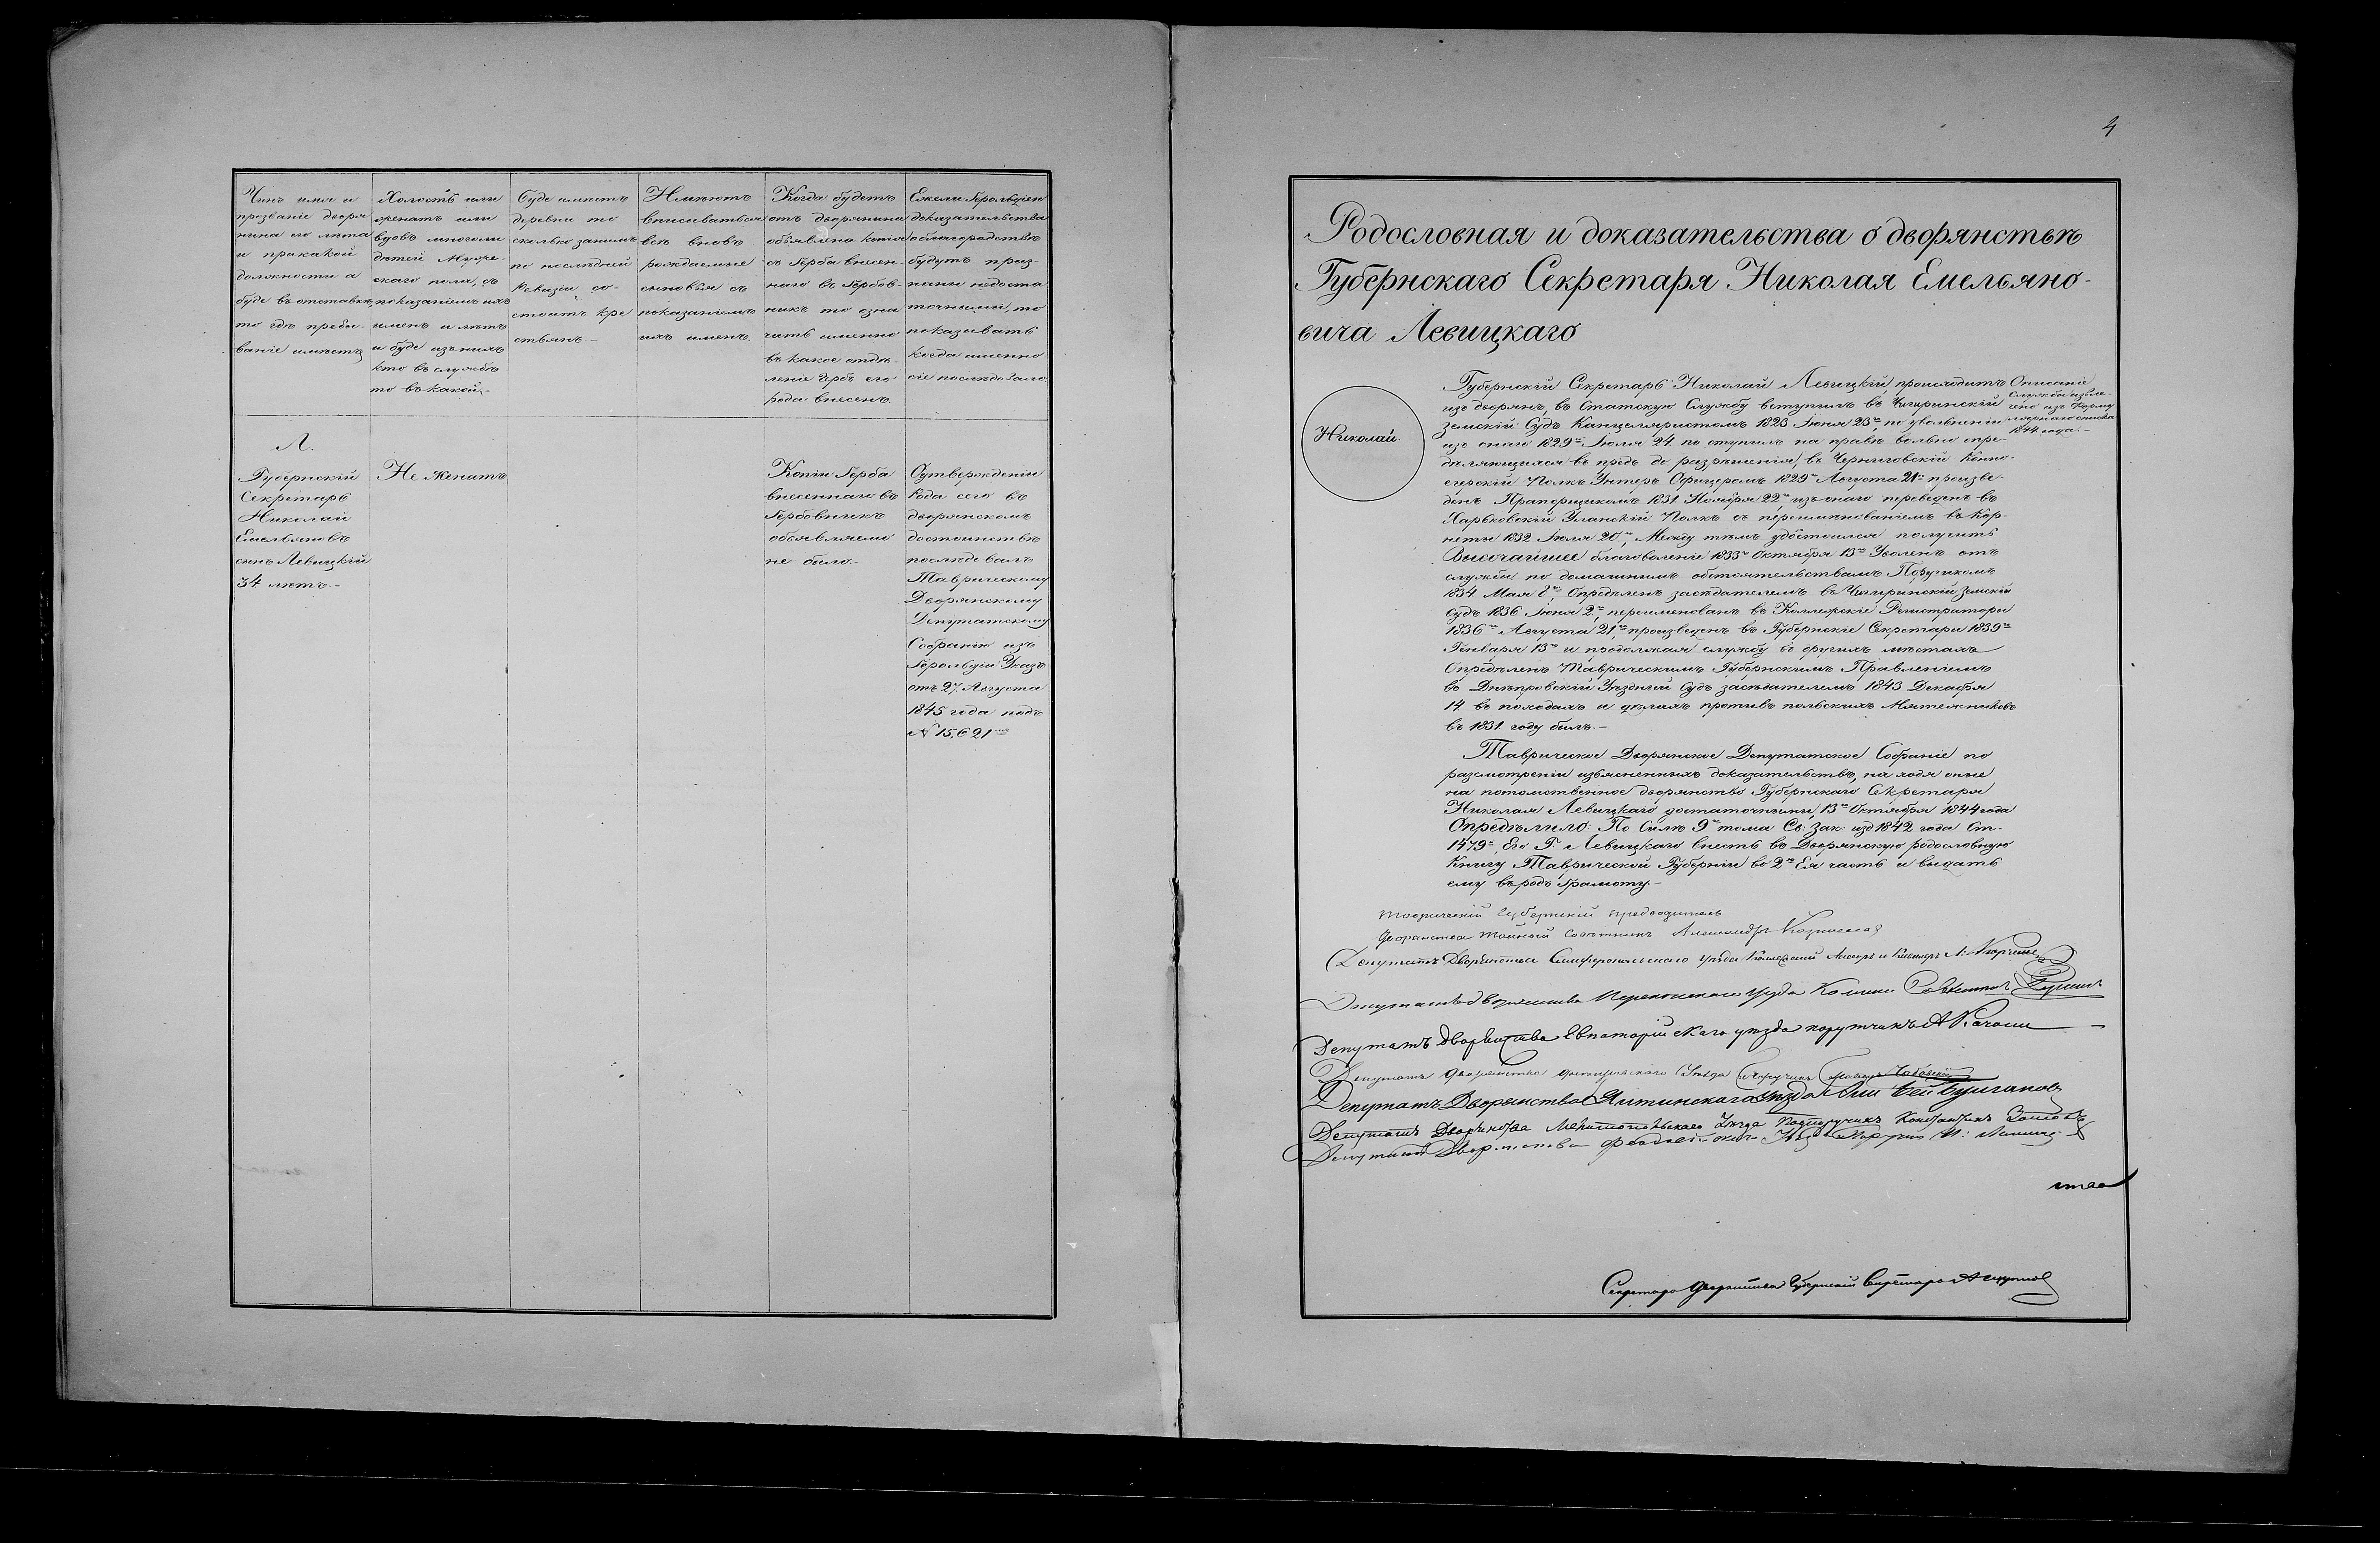 Чинъ имя и
прозваніе дворя
нина его лѣта
и при какой
должности а
буде въ отставкѣ
то гдѣ пребы-
ваніе имѣетъ
Холостъ или
женатъ или
вдовъ многоли
дѣтей Муже-
скаго пола, съ
показаніемъ ихъ
именъ и лѣтъ
и буде изъ нихъ
кто въ службѣ
то въ какой.-
Буде имѣетъ
деревни то
сколько за нимъ
по послѣдней
Ревизіи со-
стоитъ кре
стьянъ.-
Имѣютъ
вписываться
всѣ вновь
рождаемые
сыновья съ
показаніемъ
ихъ именъ.
Когда будетъ
отъ дворянина
объявлена копія
съ Герба внесен-
наго въ Гербов-
никъ то озна
чать именно
въ какое отдѣ-
леніе Гербъ его
рода внесенъ.
Ежели Герольдіею
доказательства
о благородствѣ
будутъ приз-
наны недоста
точными, то
показывать
когда именно
сіе послѣдовало.
Л.
Губернскій
Секретарь
Николай
Емельяновъ
сынъ Левицкій
34 лѣтъ.-
Не женатъ
Копіи Герба
внесеннаго въ
Гербовникъ
объявляемо
не было.-
О утвержденіи
Рода сего въ
дворянскомъ
достоинствѣ
послѣдовалъ
Таврическому
Дворянскому
Депутатскому
Собранію изъ
Герольдіи Указъ
отъ 27. Августа
1845 года подъ
№ 15,621
4
Родословная и доказательства о дворянствѣ
Губернскаго Секретаря Николая Емельяно-
вича Левицкаго
Николай.
Описаніе
Службы извле-
чено изъ Форму
лярнаго списка
1844 года.-
Губернскій Секретарь Николай Левицкій, происходитъ
изъ дворянъ, въ Статскую Службу вступилъ въ Чигиринскій
Земскій Судъ Канцеляристомъ 1823 Іюня 23, по увольненіи
изъ онаго 1829 Іюля 24 поступилъ на правѣ вольно опре-
дѣляющихся въ предь до разрѣшенія, въ Черниговскій Конно-
егерскій Полкъ Унтеръ Офицеромъ 1829 Августа 21 произве-
денъ Прапорщикомъ 1831 Ноября 22 изъ онаго переведенъ въ
Харьковскій Уланскій Полкъ съ переимѣнованіемъ въ Кор-
неты 1832 Іюля 20, Между тѣмъ удостоился получить
Высочайшее благоволеніе 1833 Октября 13 Уволенъ отъ
службы по домашнимъ обстоятельствамъ Поручикомъ
1834 Мая 8, Опредѣленъ засѣдателемъ въ Чигиринскій Земскій
Судъ 1836 Іюня 2, переименованъ въ Коллежскіе Регистраторы
1836 Августа 21, произведенъ въ Губернскіе Секретари 1839
Генваря 13 и продолжая службу въ другихъ мѣстахъ
Опредѣленъ Таврическимъ Губернскимъ Правленіемъ
въ Днѣпровскій Уѣздный Судъ засѣдателемъ 1843 Декабря
14 въ походахъ и дѣлахъ противъ польскихъ Мятежниковъ
въ 1831 году былъ.-
Таврическое Дворянское Депутатское Собраніе по
разсмотреніи изъясненныхъ доказательствъ, находя оные
на потомственное дворянство Губернскаго Секретаря
Николая Левицкаго достаточными, 13 Октября 1844 года
Опредѣлило: По Силѣ 9 тома Св: Зак: изд 1842 года Ст-
1479, Его Г. Левицкаго внесть въ Дворянскую родословную
Книгу Таврической Губерніи во 2 Ея часть и выдать
ему въ родъ Грамоту.-
Таврическій Губернскій предводитель
дворянства тайный совѣтникъ Александръ Казначеевъ
Депутатъ Дворянства Симферопольскаго уѣзда Коллежскій
Депутатъ дворянства Перекопскаго уѣзда
Депутатъ дворянства Евпаторійскаго уѣзда поручикъ А
Депутатъ дворянства Днѣпровскаго Уѣзда Поручикъ
Депутатъ Дворянства Ялтинскаго Уѣзда Али Бей Булгаковъ
Депутатъ Дворянства Мелитопольскаго Уѣзда Подпоручикъ Константинъ
Депутатъ Дворянства Феодосійскаго
Секретарь дворянства Губернскій Секретарь